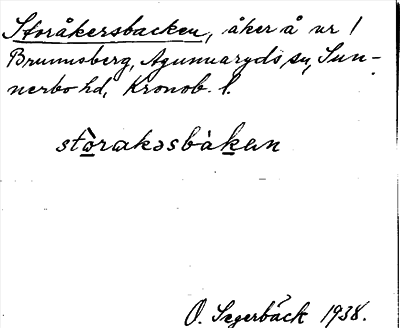 Storåkersbacken, åker å nr 1
Brunnsberg, Agunnaryds sn, Sun-
nerbo hd, Kronob. l.
stòrakəsbàkan
O. Segerbäck 1938.